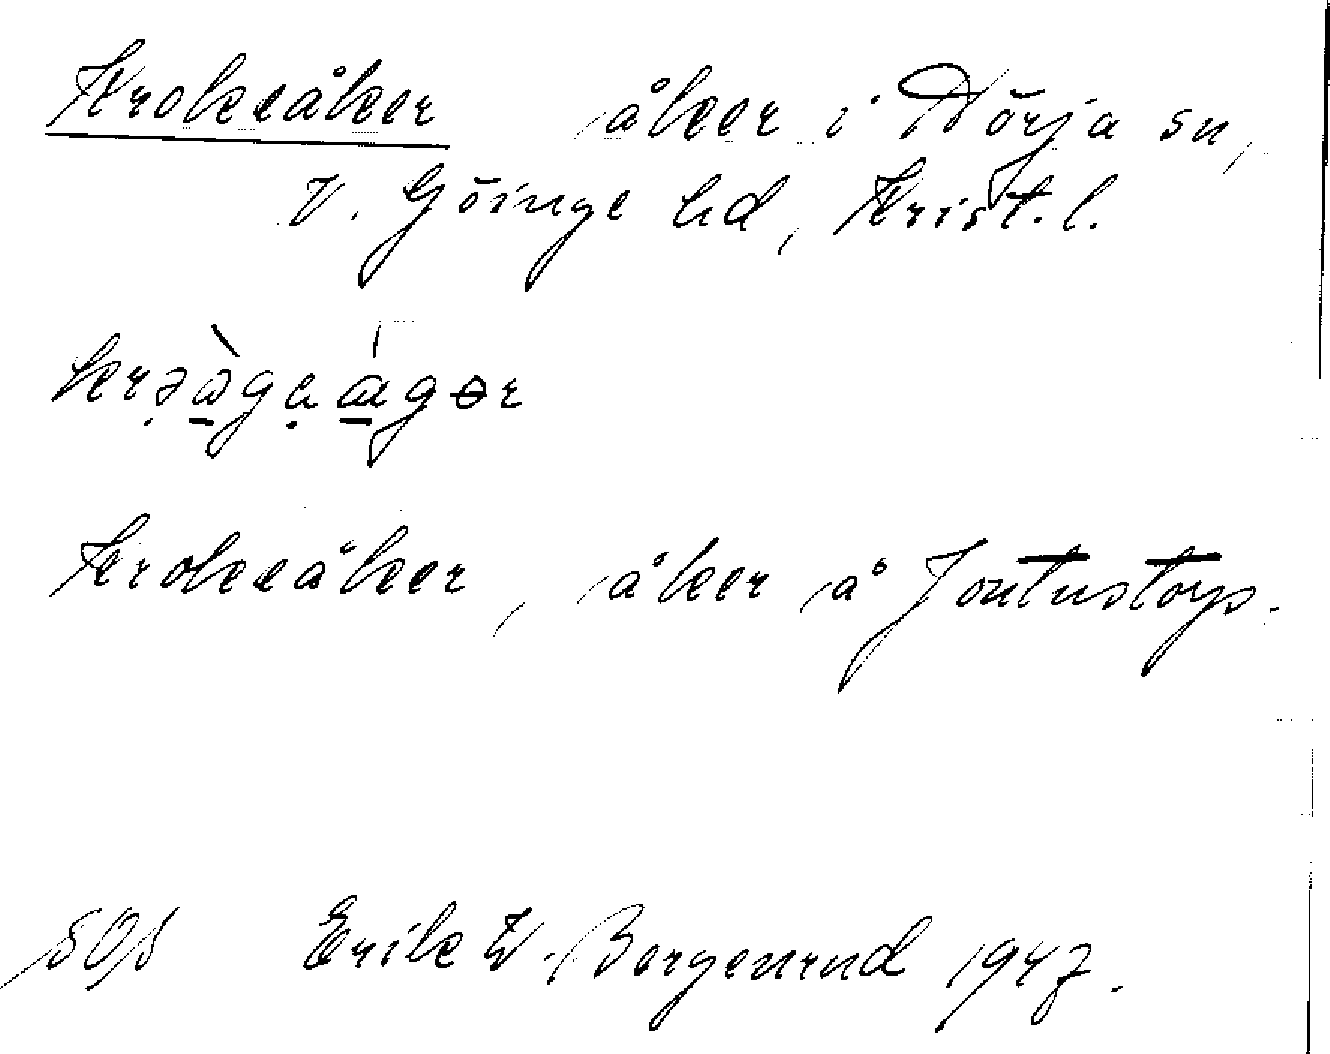 Krokeåker åker i Nörja sn,
V. Göinge hd, Krist. l.
Krokeåker, åker å Jontustorp.
SOS Erik W. Borgenrud 1947.